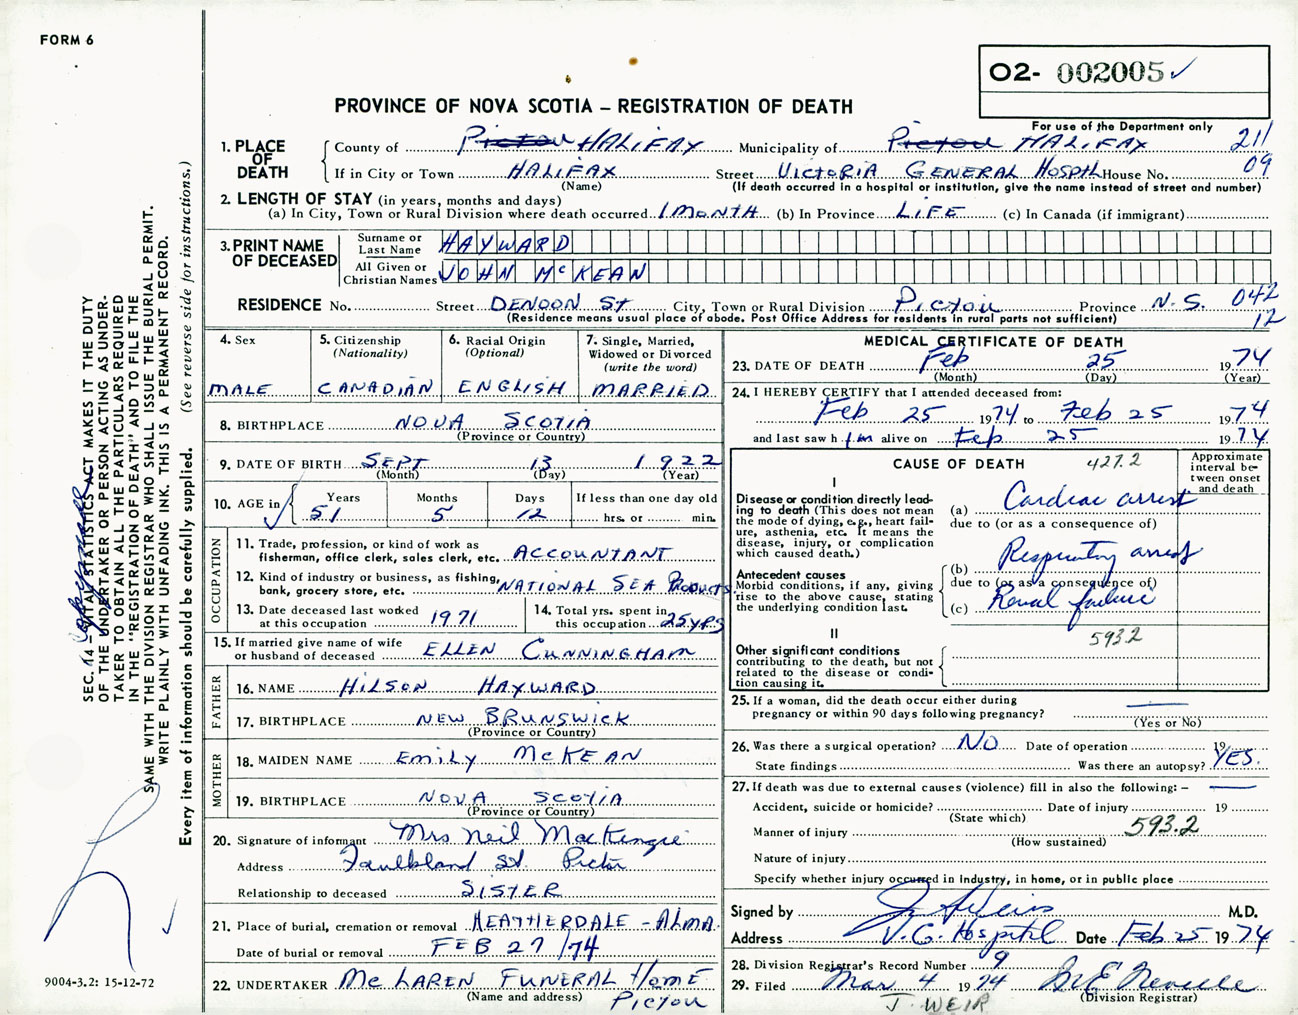 FORM 6
O2- 002005 ✓
PROVINCE OF NOVA SCOTIA – REGISTRATION OF DEATH
For use of the Department only
1. PLACE OF DEATH
County of Pictou HALIFAX Municipality of Pictou HALIFAX 211
If in City or Town HALIFAX Street VICTORIA GENERAL HOSPTL House No. 09
(Name) (If death occurred in a hospital or institution, give the name instead of street and number)
2. LENGTH OF STAY (in years, months and days)
(a) In City, Town or Rural Division where death occurred 1 MONTH (b) In Province LIFE (c) In Canada (if immigrant)
3. PRINT NAME OF DECEASED
Surname or Last Name HAYWARD
All Given or Christian Names JOHN McKEAN
RESIDENCE No. Street DENOON ST City, Town or Rural Division PICTOU Province N.S. 042
(Residence means usual place of abode. Post Office Address for residents in rural parts not sufficient) 12
4. Sex MALE
5. Citizenship (Nationality) CANADIAN
6. Racial Origin (Optional) ENGLISH
7. Single, Married, Widowed or Divorced (write the word) MARRIED
8. BIRTHPLACE NOVA SCOTIA
(Province or Country)
9. DATE OF BIRTH SEPT 13 1922
(Month) (Day) (Year)
10. AGE in Years Months Days If less than one day old
✓ 51 5 12 hrs. or min.
OCCUPATION
11. Trade, profession, or kind of work as
fisherman, office clerk, sales clerk, etc. ACCOUNTANT
12. Kind of industry or business, as fishing,
bank, grocery store, etc. NATIONAL SEA PRODUCTS
13. Date deceased last worked
at this occupation 1971
14. Total yrs. spent in
this occupation 25 YRS
15. If married give name of wife
or husband of deceased ELLEN CUNNINGHAM
FATHER
16. NAME HILSON HAYWARD
17. BIRTHPLACE NEW BRUNSWICK
(Province or Country)
MOTHER
18. MAIDEN NAME EMILY McKEAN
19. BIRTHPLACE NOVA SCOTIA
(Province or Country)
20. Signature of informant Mrs Neil MacKenzie
Address Faulkland St. Pictou
Relationship to deceased SISTER
21. Place of burial, cremation or removal HEATHERDALE - ALMA
Date of burial or removal FEB 27/74
22. UNDERTAKER McLAREN FUNERAL HOME
(Name and address) PICTOU
MEDICAL CERTIFICATE OF DEATH
23. DATE OF DEATH Feb 25 1974
(Month) (Day) (Year)
24. I HEREBY CERTIFY that I attended deceased from:
Feb 25 1974 to Feb 25 1974
and last saw him alive on Feb 25 1974
CAUSE OF DEATH 427.2
Approximate interval between onset and death
I
Disease or condition directly leading to death (This does not mean the mode of dying, e.g., heart failure, asthenia, etc. It means the disease, injury, or complication which caused death.)
(a) Cardiac arrest
due to (or as a consequence of)
Antecedent causes
Morbid conditions, if any, giving rise to the above cause, stating the underlying condition last.
(b) Respiratory arrest
due to (or as a consequence of)
(c) Renal failure
593.2
II
Other significant conditions
contributing to the death, but not related to the disease or condition causing it.
25. If a woman, did the death occur either during
pregnancy or within 90 days following pregnancy? —
(Yes or No)
26. Was there a surgical operation? NO Date of operation 19
State findings Was there an autopsy? YES.
27. If death was due to external causes (violence) fill in also the following: – —
Accident, suicide or homicide? Date of injury 19
(State which)
Manner of injury 593.2
(How sustained)
Nature of injury
Specify whether injury occurred in industry, in home, or in public place
Signed by J Weir M.D.
Address V.G. Hospital Date Feb 25 1974
28. Division Registrar's Record Number 9
29. Filed Mar 4 1974
(Division Registrar)
J. WEIR
SEC. 14 – VITAL STATISTICS ACT MAKES IT THE DUTY
OF THE UNDERTAKER OR PERSON ACTING AS UNDER-
TAKER TO OBTAIN ALL THE PARTICULARS REQUIRED
IN THE "REGISTRATION OF DEATH" AND TO FILE THE
SAME WITH THE DIVISION REGISTRAR WHO SHALL ISSUE THE BURIAL PERMIT.
WRITE PLAINLY WITH UNFADING INK. THIS IS A PERMANENT RECORD.
Every item of information should be carefully supplied. (See reverse side for instructions.)
9004-3.2: 15-12-72